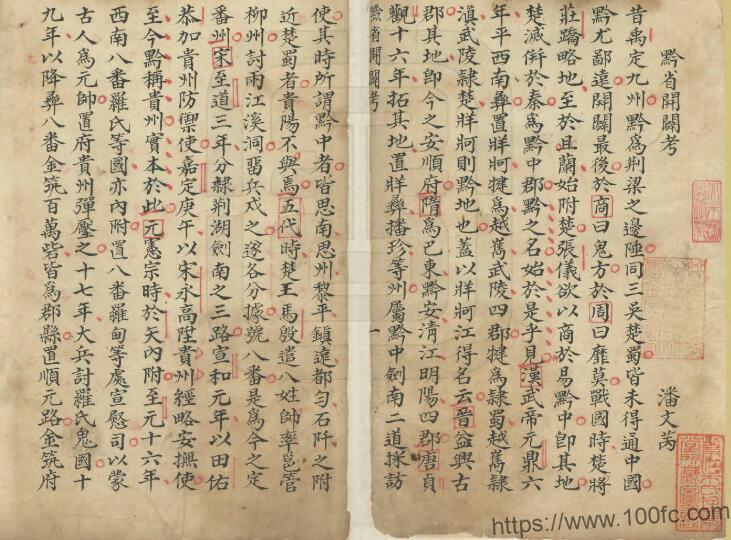 黔省開闢考
潘文芮
昔禹定九州黔爲荆梁之邊陲同三吳楚蜀皆未得通中國
黔尤鄙遠開闢最後於商曰鬼方於周曰靡莫戰國時楚將
莊蹻略地至於且蘭始附楚張儀欲以商於易黔中卽其地
楚滅倂於秦爲黔中郡黔之名始於是乎見漢武帝元鼎六
年平西南彝置牂牁犍爲越嶲武陵四郡犍爲隸蜀越嶲隸
滇武陵隸楚牂牁則黔地也蓋以牂牁江得名云晉益興古
郡其地卽今之安順府隋爲巴東黔安清江明陽四郡唐貞
觀十六年拓其地置牂彝播珍等州屬黔中劍南二道採訪
黔省開闢考
一
使其時所謂黔中者皆思南思州黎平鎮遠都勻石阡之附
近楚蜀者貴陽不與焉五代時楚王馬殷遣八姓帥率邕管
柳州討兩江溪洞畱兵戍之遂各分據號八番是爲今之定
番州宋至道三年分隸荆湖劍南之三路宣和元年以田佑
恭加貴州防禦使嘉定庚午以宋永高陞貴州經略安撫使
至今黔稱貴州實本於此元憲宗時於矢內附至元十六年
西南八番羅氏等國亦內附置八番羅甸等處宣慰司以蒙
古人爲元帥置府貴州彈壓之十七年大兵討羅氏鬼國十
九年以降彝八番金筑百萬砦皆爲郡縣置順元路金筑府
https://www.100fc.com